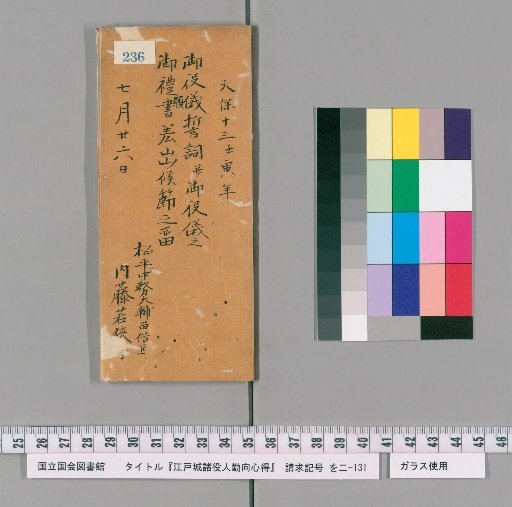 236
天保十三壬寅年
御役儀誓詞并御役儀之
御禮書差出候節之留
七月廿六日
松平中務大輔留守居
内藤若狭
25 26 27 28 29 30 31 32 33 34 35 36 37 38 39 40 41 42 43 44 45 46
国立国会図書館 タイトル『江戸城諸役人勤向心得』 請求記号 を二-131 ガラス使用